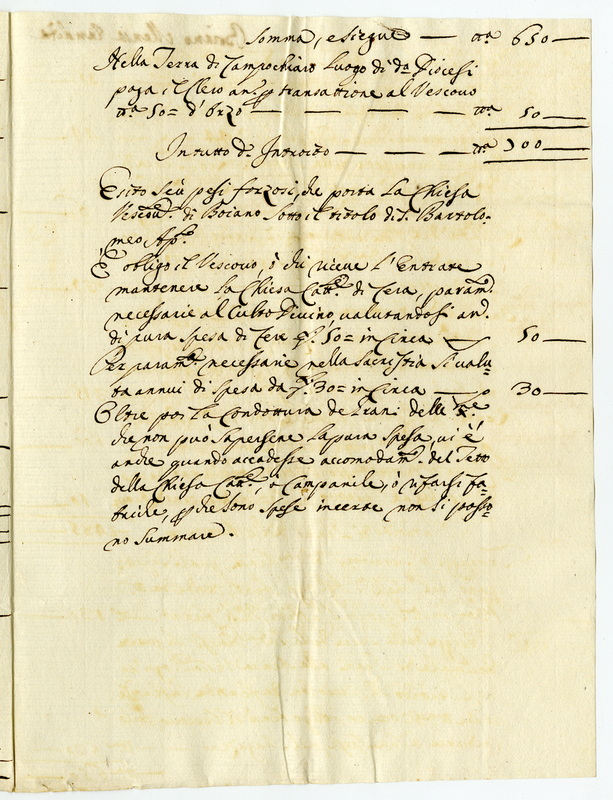 Somma, e siegue — tt.a 650 —
Nella Terra di Campochiaro luogo di d.a Diocesi
paga il Clero an.s p transattione al Vescovo
tt.a 50= d'orzo — — — — tt.a 50 —
In tutto d.o Introito — — — tt.a 700 —
Esito seù pesi forzosi, che porta la Chiesa
Vescov.l di Boiano sotto il titolo di S. Bartolo-
meo Ap.o
È obligo il Vescovo, ò chi riceve l'Entrate
mantenere la Chiesa Catt.e di Cera, param.ti
necessarie al Culto Divino, valutandosi an.
di pura spesa di Cere 50= in Circa — 50 —
Per param.ti necessarie nella Sacristia si valu-
ta annui di spesa da 30= in Circa — 30 —
Oltre poi la Condottura de Grani delle
che non può sapersene la pura spesa, vi è
anche quando accadesse accomodam.to del Tetto
della Chiesa Catt.e, ò Campanile, ò rifarsi fa-
briche, p che sono spese incerte non si posso-
no summare.